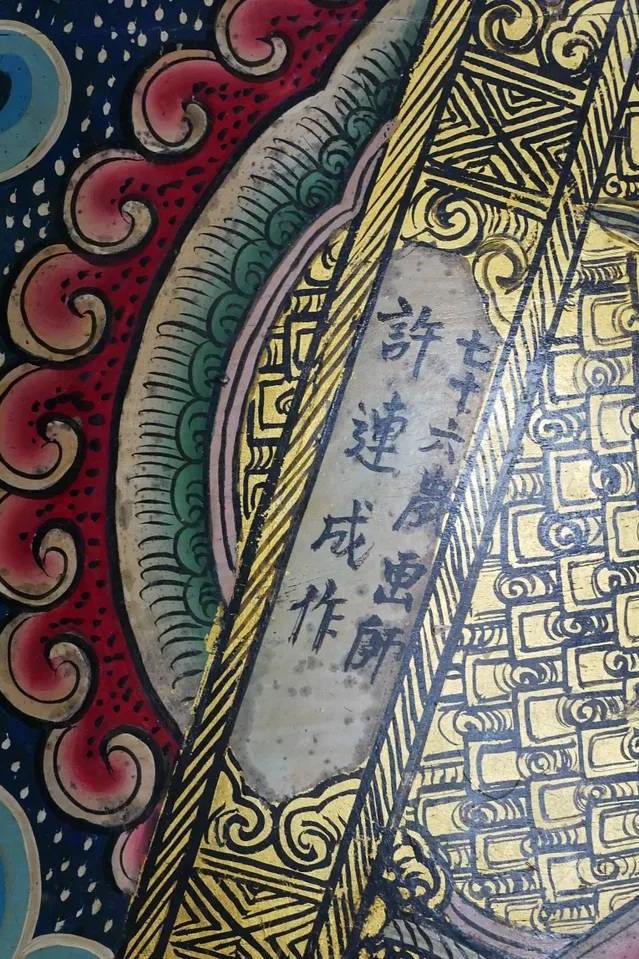 七十六歲畫師
許連成作